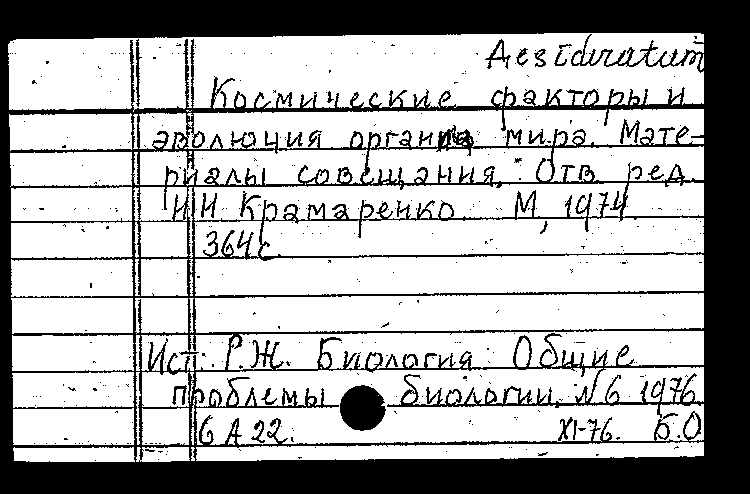 Desideratum
Космические факторы и
эволюция органич мира. Мате-
риалы совещания. Отв. ред.
Н И Крамаренко. М, 1974.
364 с.
Ист: Р.Ж. Биология. Общие
проблемы биологии. № 6 1976
6 А 22. XI-76. Б.О